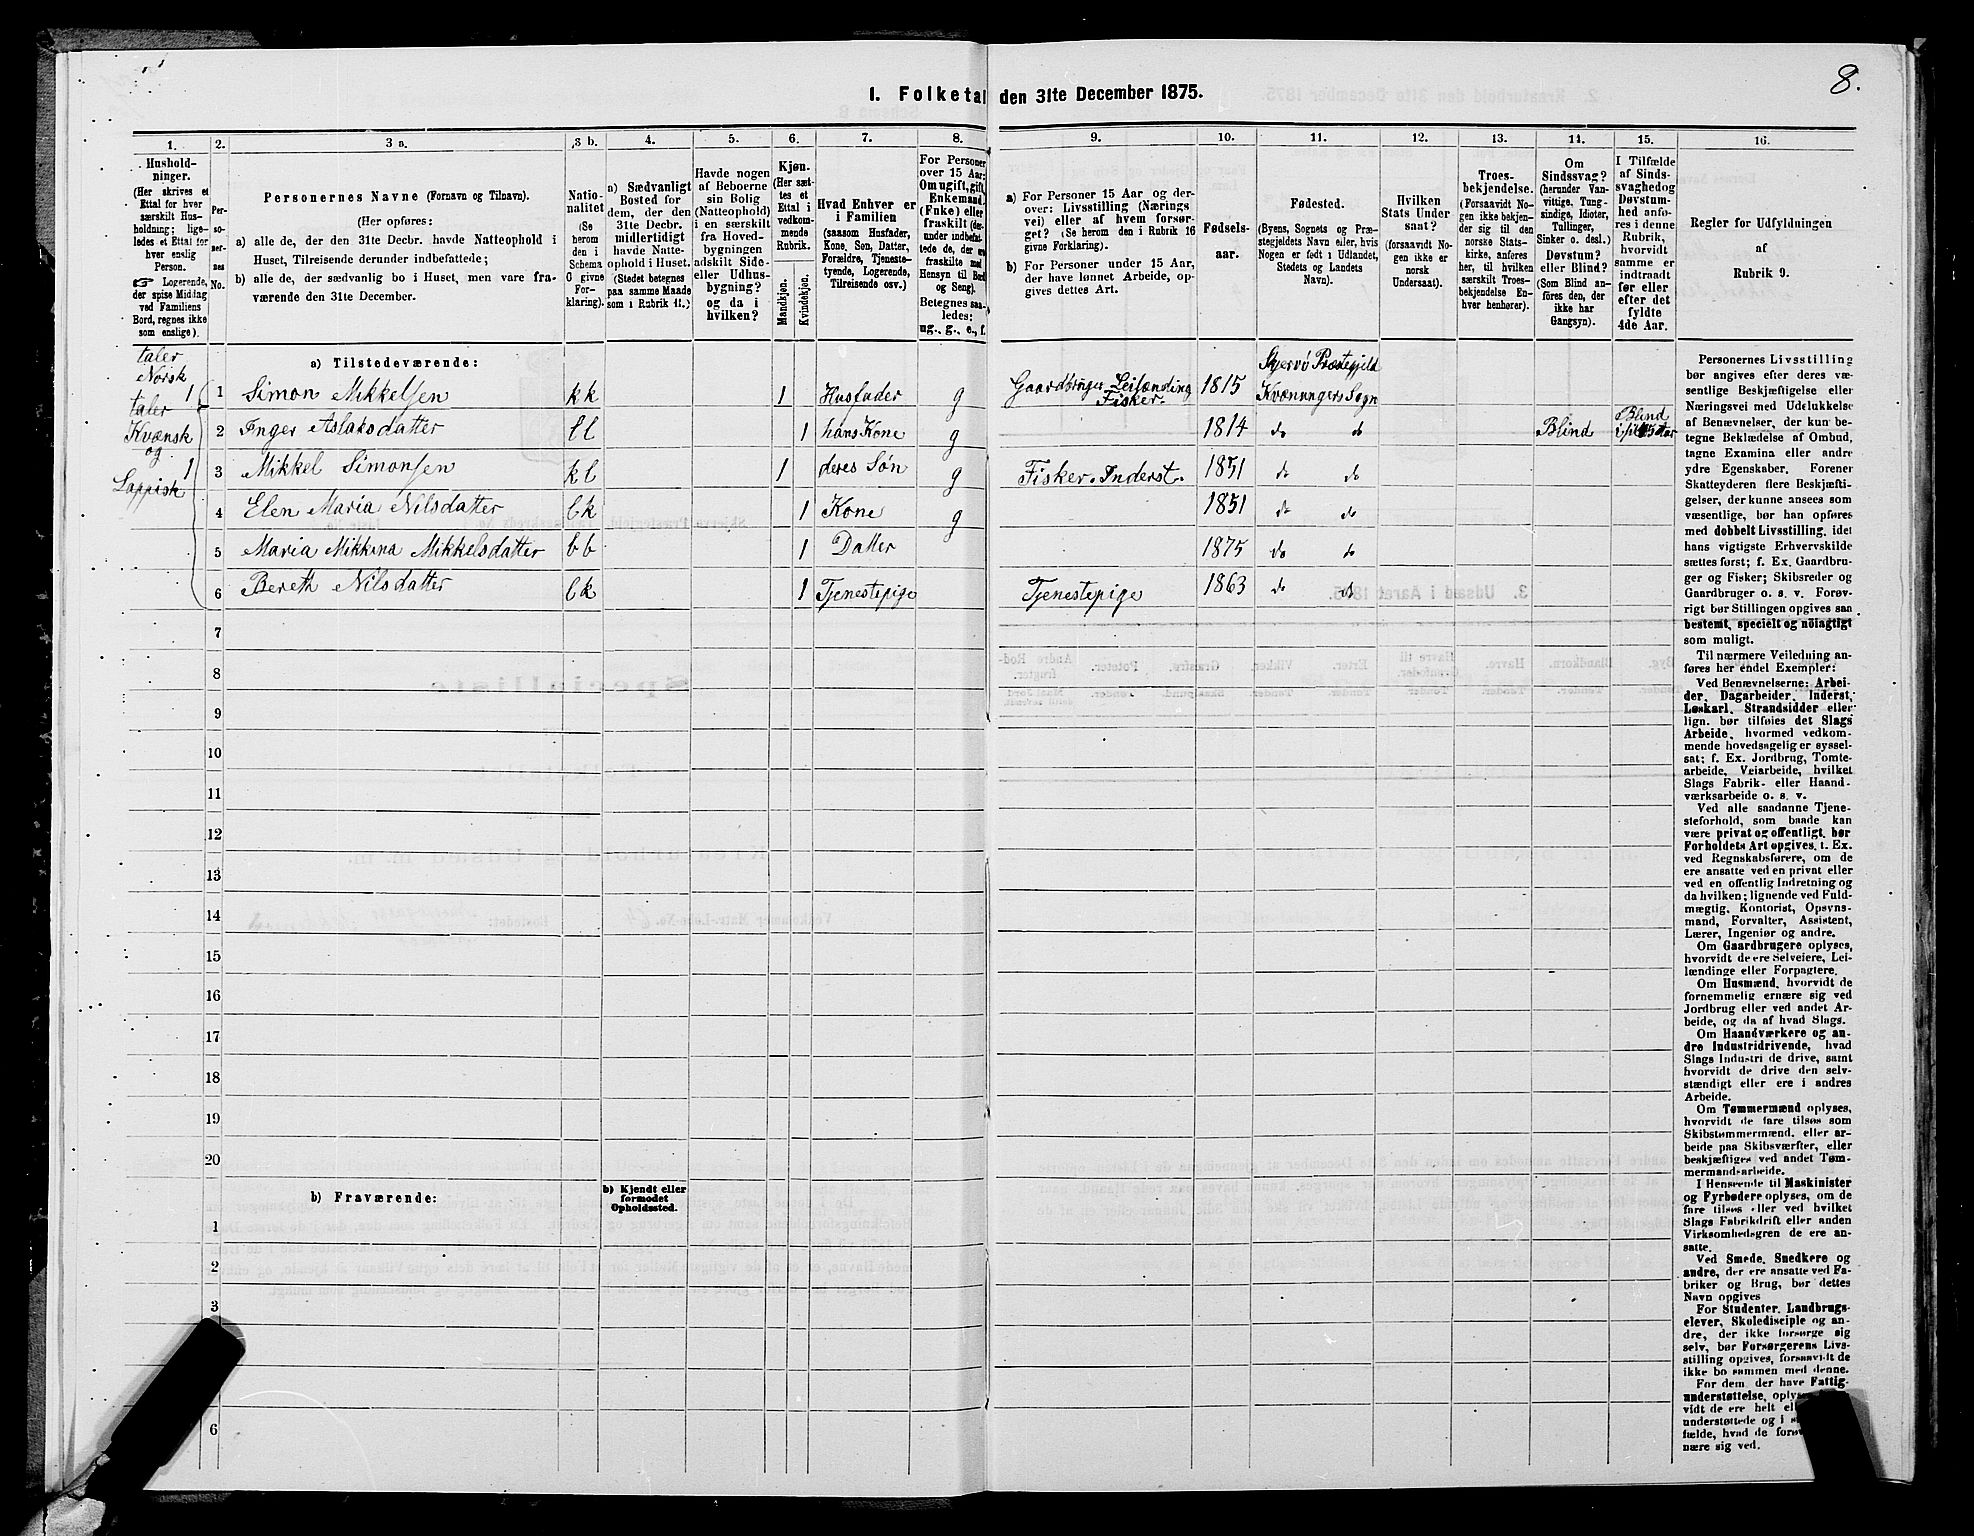 8.
1. Folketal den 31te December 1875.
1. 2. 3 a. 3 b. 4. 5. 6. 7. 8. 9. 10. 11. 12. 13. 14. 15. 16.
Hushold-
ninger.
(Her skrives et
Ettal for hver
særskilt Hus-
holdning; lige-
ledes et Ettal for
hver enslig
Person.
☞ Logerende,
der spise Middag
ved Familiens
Bord, regnes ikke
som enslige).
Per-
so-
ner-
nes
No.
Personernes Navne (Fornavn og Tilnavn).
(Her opføres:
a) alle de, der den 31te Decbr. havde Natteophold i
Huset, Tilreisende derunder indbefattede;
b) alle de, der sædvanlig bo i Huset, men vare fra-
værende den 31te December.
Natio-
nalitet
(Se
herom
den i
Schema
G givne
For-
klaring).
a) Sædvanligt
Bosted for
dem, der den
31te Decbr.
midlertidigt
havde Natte-
ophold i Huset.
(Stedet betegnes
paa samme Maade
som i Rubrik 11.)
Havde nogen
af Beboerne
sin Bolig
(Natteophold)
i en særskilt
fra Hoved-
bygningen
adskilt Side-
eller Udhus-
bygning?
og da i
hvilken?
Kjøn.
(Her sæt-
tes et
Ettal i
vedkom-
mende
Rubrik.
Mandkjøn.
Kvindekjøn.
Hvad Enhver er
i Familien
(saasom Husfader,
Kone, Søn, Datter,
Forældre, Tjeneste-
tyende, Logerende,
Tilreisende osv.)
For Personer
over 15 Aar:
Om ugift, gift,
Enkemand
(Enke) eller
fraskilt
Betegnes saa-
ledes:
ug., g., e., f.
a) For Personer 15 Aar og der-
over: Livsstilling (Nærings
vei) eller af hvem forsør-
get? (Se herom den i Rubrik 16
givne Forklaring).
b) For Personer under 15 Aar,
der have lønnet Arbeide, op-
gives dettes Art.
Fødsels-
aar.
Fødested.
(Byens, Sognets og Præ-
stegjeldets Navn eller, hvis
Nogen er født i Udlandet,
Stedets og Landets
Navn).
Hvilken
Stats Under
saat?
(forsaavidt No-
gen ikke er
norsk
Undersaat).
Troes-
bekjendelse.
(Forsaavidt No-
gen ikke bekjen-
der sig til den
norske Stats-
kirke, anføres
her, til hvilken
særskilt Troes-
bekjendelse En-
hver henhører).
Om
Sindssvag?
(herunder Van-
vittige, Tung-
sindige, Idioter,
Tullinger,
Sinker o. desl.)
Døvstum?
eller Blind?
(Som Blind an-
føres den, der
ikke har
Gangsyn).
I Tilfælde
af Sinds-
svaghed og
Døvstum-
hed anfø-
res i denne
Rubrik,
hvorvidt
samme er
indtraadt
før eller
efter det
fyldte
4de Aar.
Regler for Udfyldningen
af
Rubrik 9.
a) Tilstedeværende:
taler
Norsk
taler
Kvænsk
og
Lappisk
1 1 Simon Mikkelsen kk 1 Husfader g Gaardbruger Leilænding Fisker. 1815 Skjervö Præstegjeld Kvænangers Sogn
2 Inger Aslaksdatter ll 1 hans Kone g 1814 do do Blind Blind
1 3 Mikkel Simonsen kl 1 deres Søn g Fisker. Inderst. 1851 do do
4 Elen Maria Nilsdatter bk 1 Kone g 1851 do do
5 Maria Mikkina Mikkelsdatter bb 1 Datter 1875 do do
6 Bereth Nilsdatter bk 1 Tjenestepige Tjenestepige 1863 do do
7
8
9
10
11
12
13
14
15
16
17
18
19
20
b) Fraværende:
b) Kjendt eller
formodet
Opholdssted.
1
2
3
6
Personernes Livsstilling
bør angives efter deres væ-
sentlige Beskjæftigelse eller
Næringsvei med Udelukkelse
af Benævnelser, der kun be-
tegne Beklædelse af Ombud,
tagne Examina eller andre
ydre Egenskaber. Forener
Skatteyderen flere Beskjæfti-
gelser, der kunne ansees som
væsentlige, bør han opføres
med dobbelt Livsstilling, idet
hans vigtigste Erhvervskilde
sættes først; f. Ex. Gaardbru-
ger og Fisker; Skibsreder og
Gaardbruger o. s. v. Forøv-
rigt bør Stillingen opgives saa
bestemt, specielt og nöiagtigt
som muligt.
Til nærmere Veiledning an-
føres her endel Exempler:
Ved Benævnelserne: Arbei-
der, Dagarbeider, Inderst,
Løskarl, Strandsidder eller
lign. bør tilføies det Slags
Arbeide, hvormed vedkom-
mende hovedsagelig er syssel-
sat; f. Ex. Jordbrug, Tomte-
arbeide, Veiarbeide, hvilket
Slags Fabrik- eller Haand-
værksarbeide o. s. v.
Ved alle saadanne Tjene-
steforhold, som baade kan
være privat og offentligt, bør
Forholdets Art opgives, f. Ex.
ved Regnskabsførere, om de
ere ansatte ved en privat eller
ved en offentlig Indretning og
da hvilken; lignende ved Fuld-
mægtig, Kontorist, Opsyns-
mand, Forvalter, Assistent,
Lærer, Ingeniør og andre.
Om Gaardbrugere oplyses,
hvorvidt de ere Selveiere, Lei-
lændinge eller Forpagtere.
Om Husmænd, hvorvidt de
fornemmelig ernære sig ved
Jordbrug eller ved andet Ar-
beide, og da af hvad Slags.
Om Haandværkere og an-
dre Industridrivende, hvad
Slags Industri de drive, samt
hvorvidt de drive den selv-
stændigt eller ere i andres
Arbeide.
Om Tømmermænd oplyses,
hvorvidt de fare tilsøs som
Skibstømmermænd, eller ar-
beide paa Skibsværfter, eller
beskjæftiges ved andet Tøm-
mermandsarbeide.
I Henseende til Maskinister
og Fyrbødere oplyses, om de
fare tilsøs eller ved hvilket
Slags Fabrikdrift eller anden
Virksomhedsgren de ere an-
satte.
Ved Smede, Snedkere og
andre, der ere ansatte ved Fa-
briker og Brug, bør dettes
Navn opgives
For Studenter, Landbrugs-
elever, Skoledisciple og an-
dre, der ikke forsørge sig
selv, bør Forsørgerens Livs-
stilling opgives, forsaavidt de
ikke bo sammen med denne.
For dem, der have Fattig-
understøttelse,
vidt de ere helt
understøttede og i
fælde, hvad de
nære sig ved.